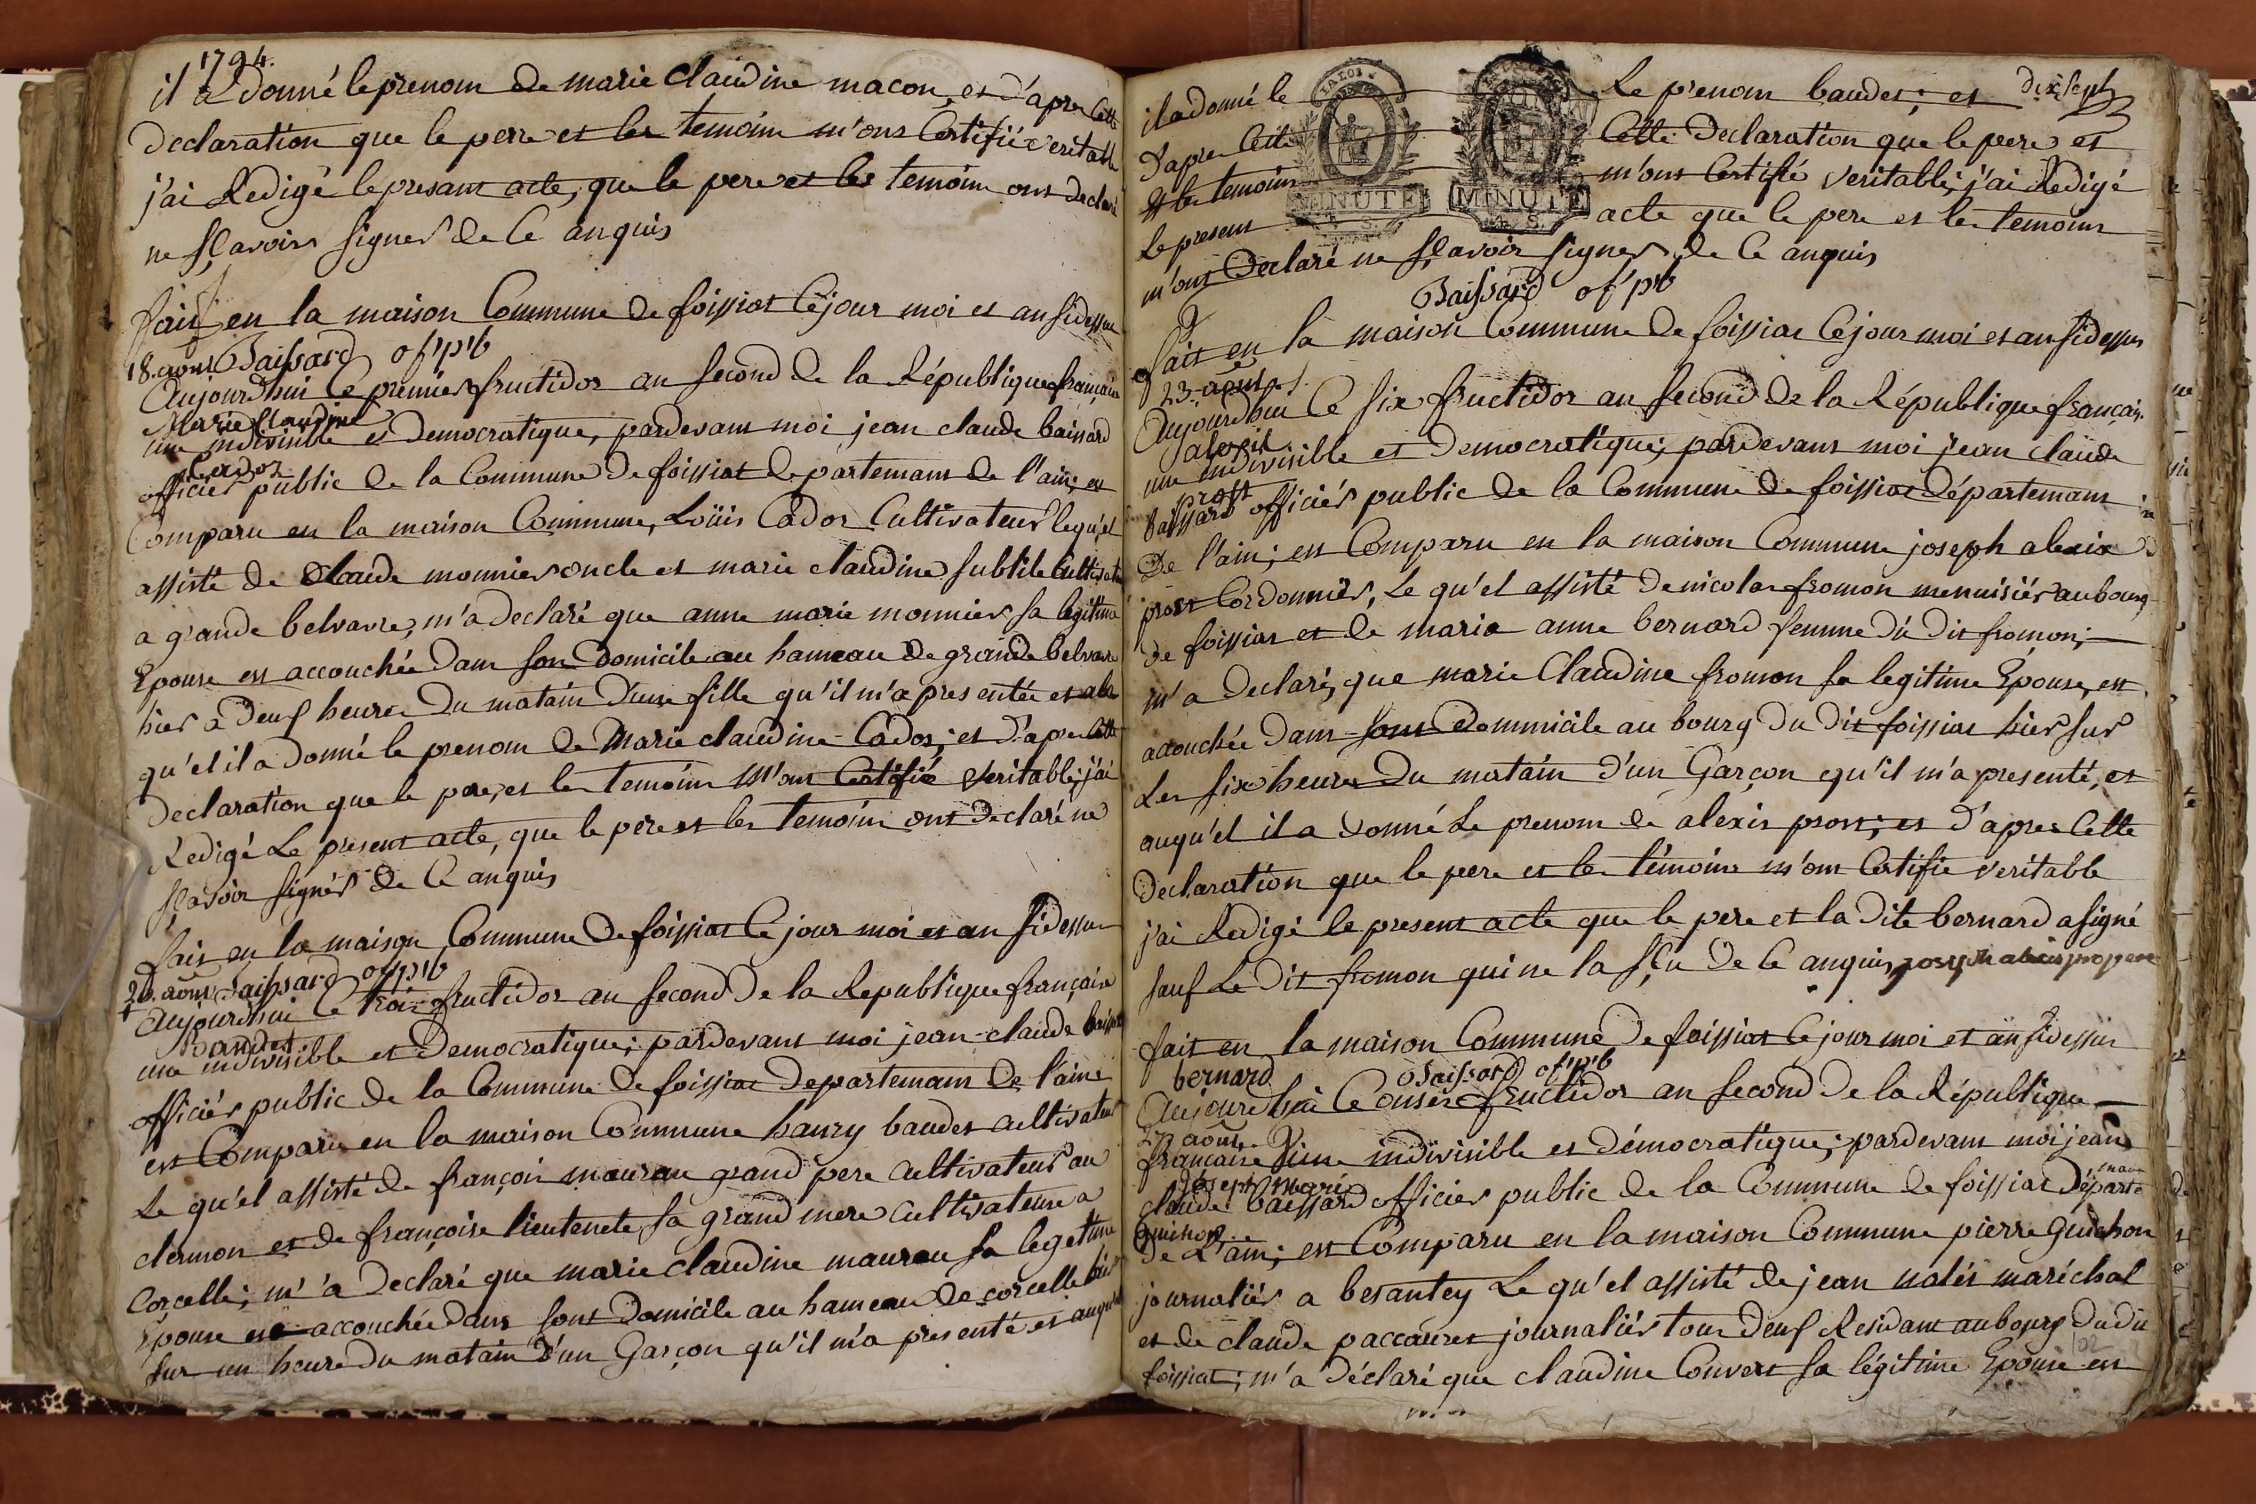 1794.
il a donné le prenom de marie claudine macon, et d'apres cette
declaration que le pere et les temoins m'ont Certifiée veritable
j'ai Redigé le presant acte, que le pere et les temoins ont declaré
ne sçavoir signer de Ce anquis
fait en la maison Commune de foissiat Cejour moi et an sidessus
18. aout Baissard of'p'b
Aujourdhui Ce premier fructidor an second de la République francaise
Marie Claudine
une indivisible et democratique, pardevant moi jean claude baissard
Cador
officier public de la Commune de foissiat departemant de l'ain; est
Comparu en la maison Commune, Loüis Cador Cultivateur lequ'el
assisté de Claude monnier oncle et marie claudine subtile Cultivat
a grande belvavre, m'a declaré que anne marie monnier sa legitime
Epouse est accouchée dans son domicile au hameau de grande belvavre
hier à deuf heures du matain d'une fille qu'il m'a presentée et a la
qu'el il a donné le prenom de Marie claudine Cador; et d'apres Cette
declaration que le pere, et les temoins M'ont Certifié veritable, j'ai
Redigé Le present acte, que le pere et les temoins ont declaré ne
sçavoir signér de Ce anquis
fait en la maison Commune de foissiat Ce jour moi et an sidessus
20. aout Baissard of'p'b
Aujourdhui Ce trois fructidor an second de la Republique françaice
baudet
une indivisible et democratique; pardevant moi jean-claude baissard
officiér public de la Commune de foissiat departemant de l'aine
est Comparu en la maison Commune hanry baudet cultivateur
Le qu'el assisté de françois maurau grand pere cultivateur au
clermon et de françoise lieutenete sa grand mere cultivateure a
Corcelle; m'a declaré que marie claudine maurau sa legetime
Epouse est accouchée dans sont domicile au hameau de corcelle hier
sur un heure du matain d'un Garçon qu'il m'a presenté et auqu'el
dixsept
il a donné le Le prenom baudet; et
d'apres Cette Cette declaration que le pere et
et les temoins m'ont Certifié veritable, j'ai Redigé
Le present acte que le pere et les temoins
m'ont declaré ne sçavoir signer de Ce anquis
LA LOI
MINUTE
4 S.
MINUTE
4 S.
Baissard of'p'b
fait en la maison Commune de foissiat Cejour moi et an sidessus
23. aout
Aujourdhui Ce six fructidor an second de la République française
alexis
une indivisible et democratique; pardevant moi jean claude
prost
baissard officiér public de la Commune de foissiat département
de l'ain; est Comparu en la maison Commune joseph alexis
prost Cordonnier, Le qu'el assisté de nicolas fromon menuisiér au bourg
de foissiat et de marie anne bernard femme du dit fromon;
m'a declaré, que marie Claudine fromon sa legitime Epouse, est
acouchée dans sont dommicile au bourg du dit foissiat hier sur
Les six heures du matain d'un Garçon qu'il m'a presenté, et
auqu'el il a donné Le prenom de alexis prost; et d'apres Cette
declaration que le pere et les témoins m'ont Certifie veritable
j'ai Redigé le present acte que le pere et la dite bernard a signé
sauf Le dit fromon qui ne la sçu de Ce anquis, joseph alexis pro pere
fait en la maison Commune de foissiat Ce jour moi et an sidessus
bernard Baissard of'p'b
Aujourdhui Ce onsée fructidor an second de la République
27 août
francaise Une indivisible et démocratique; pardevant moi jean
Josept Marie
claude baissard officier public de la Commune de foissiat départe
mant
Guichon
de L'ain; est Comparu en la maison Commune pierre Guichon
journaliér a besantey Le qu'el assisté de jean natér maréchal
et de claude paccauret journaliér tous deuf Residant au bourg dudit
102
foissiat; m'a déclaré que claudine Convert sa légitime Epouse est